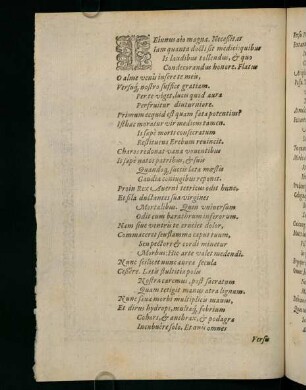 Elonum ato magna. Necesse est
Iam quanta docti sit medici: quibus
Is laudibus tollendus, & quo
Condecorandus honore. Flatu
O alme venis insere te meis,
Versuq́ nostro suffice gratiam.
Per te viget, lucis quod aura
Perfruitur diuturniore.
Primum ecquid est quam fata potentius?
Isthæc moratur vir medicus tamen.
Is sæpè mortis consecratum
Restituens Erebum reuincit.
Chara redonat vana virentibus
Is sæpè natos patribus, & suis
Quandoq́, luctu lata mæstis
Gaudia coniugibus repente.
Proin Rex Auerni tetricus odit hunc,
Et illa ductans sua virgines
Mortalibus. Quin vniuersum
Odit eum barathrum inferorum.
Nam siue ventris te crucies dolor,
Commaceret seu flamma caput tuum,
Seu pectoris & cordis minetur
Morbus: Hic arte valet medendi.
Nunc scilicet nunc aurea secula
Cessere. Letis stultitia polis
Nostra caremus, post sacratum
Quam tetigit manus atra lignum.
Nunc sæua morbi multiplicis manus,
Et dirus hydrops, multaq́, febrium
Cohors, & anthrax, & podagra
Incubuêre solo. Et tam omnes
Versu